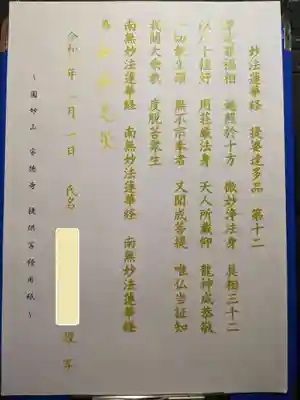 妙法蓮華経 提婆達多品 第十二
深達罪福相 遍照於十方 微妙浄法身 具相三十二
以八十種好 用荘厳法身 天人所戴仰 龍神咸恭敬
一切衆生類 無不宗奉者 又聞成菩提 唯仏当証知
我闡大乗教 度脱苦衆生
南無妙法蓮華経 南無妙法蓮華経 南無妙法蓮華経
為
令和 年 一月 一日 氏名 謹写
～ 圓妙山 寺 提供写経用紙 ～